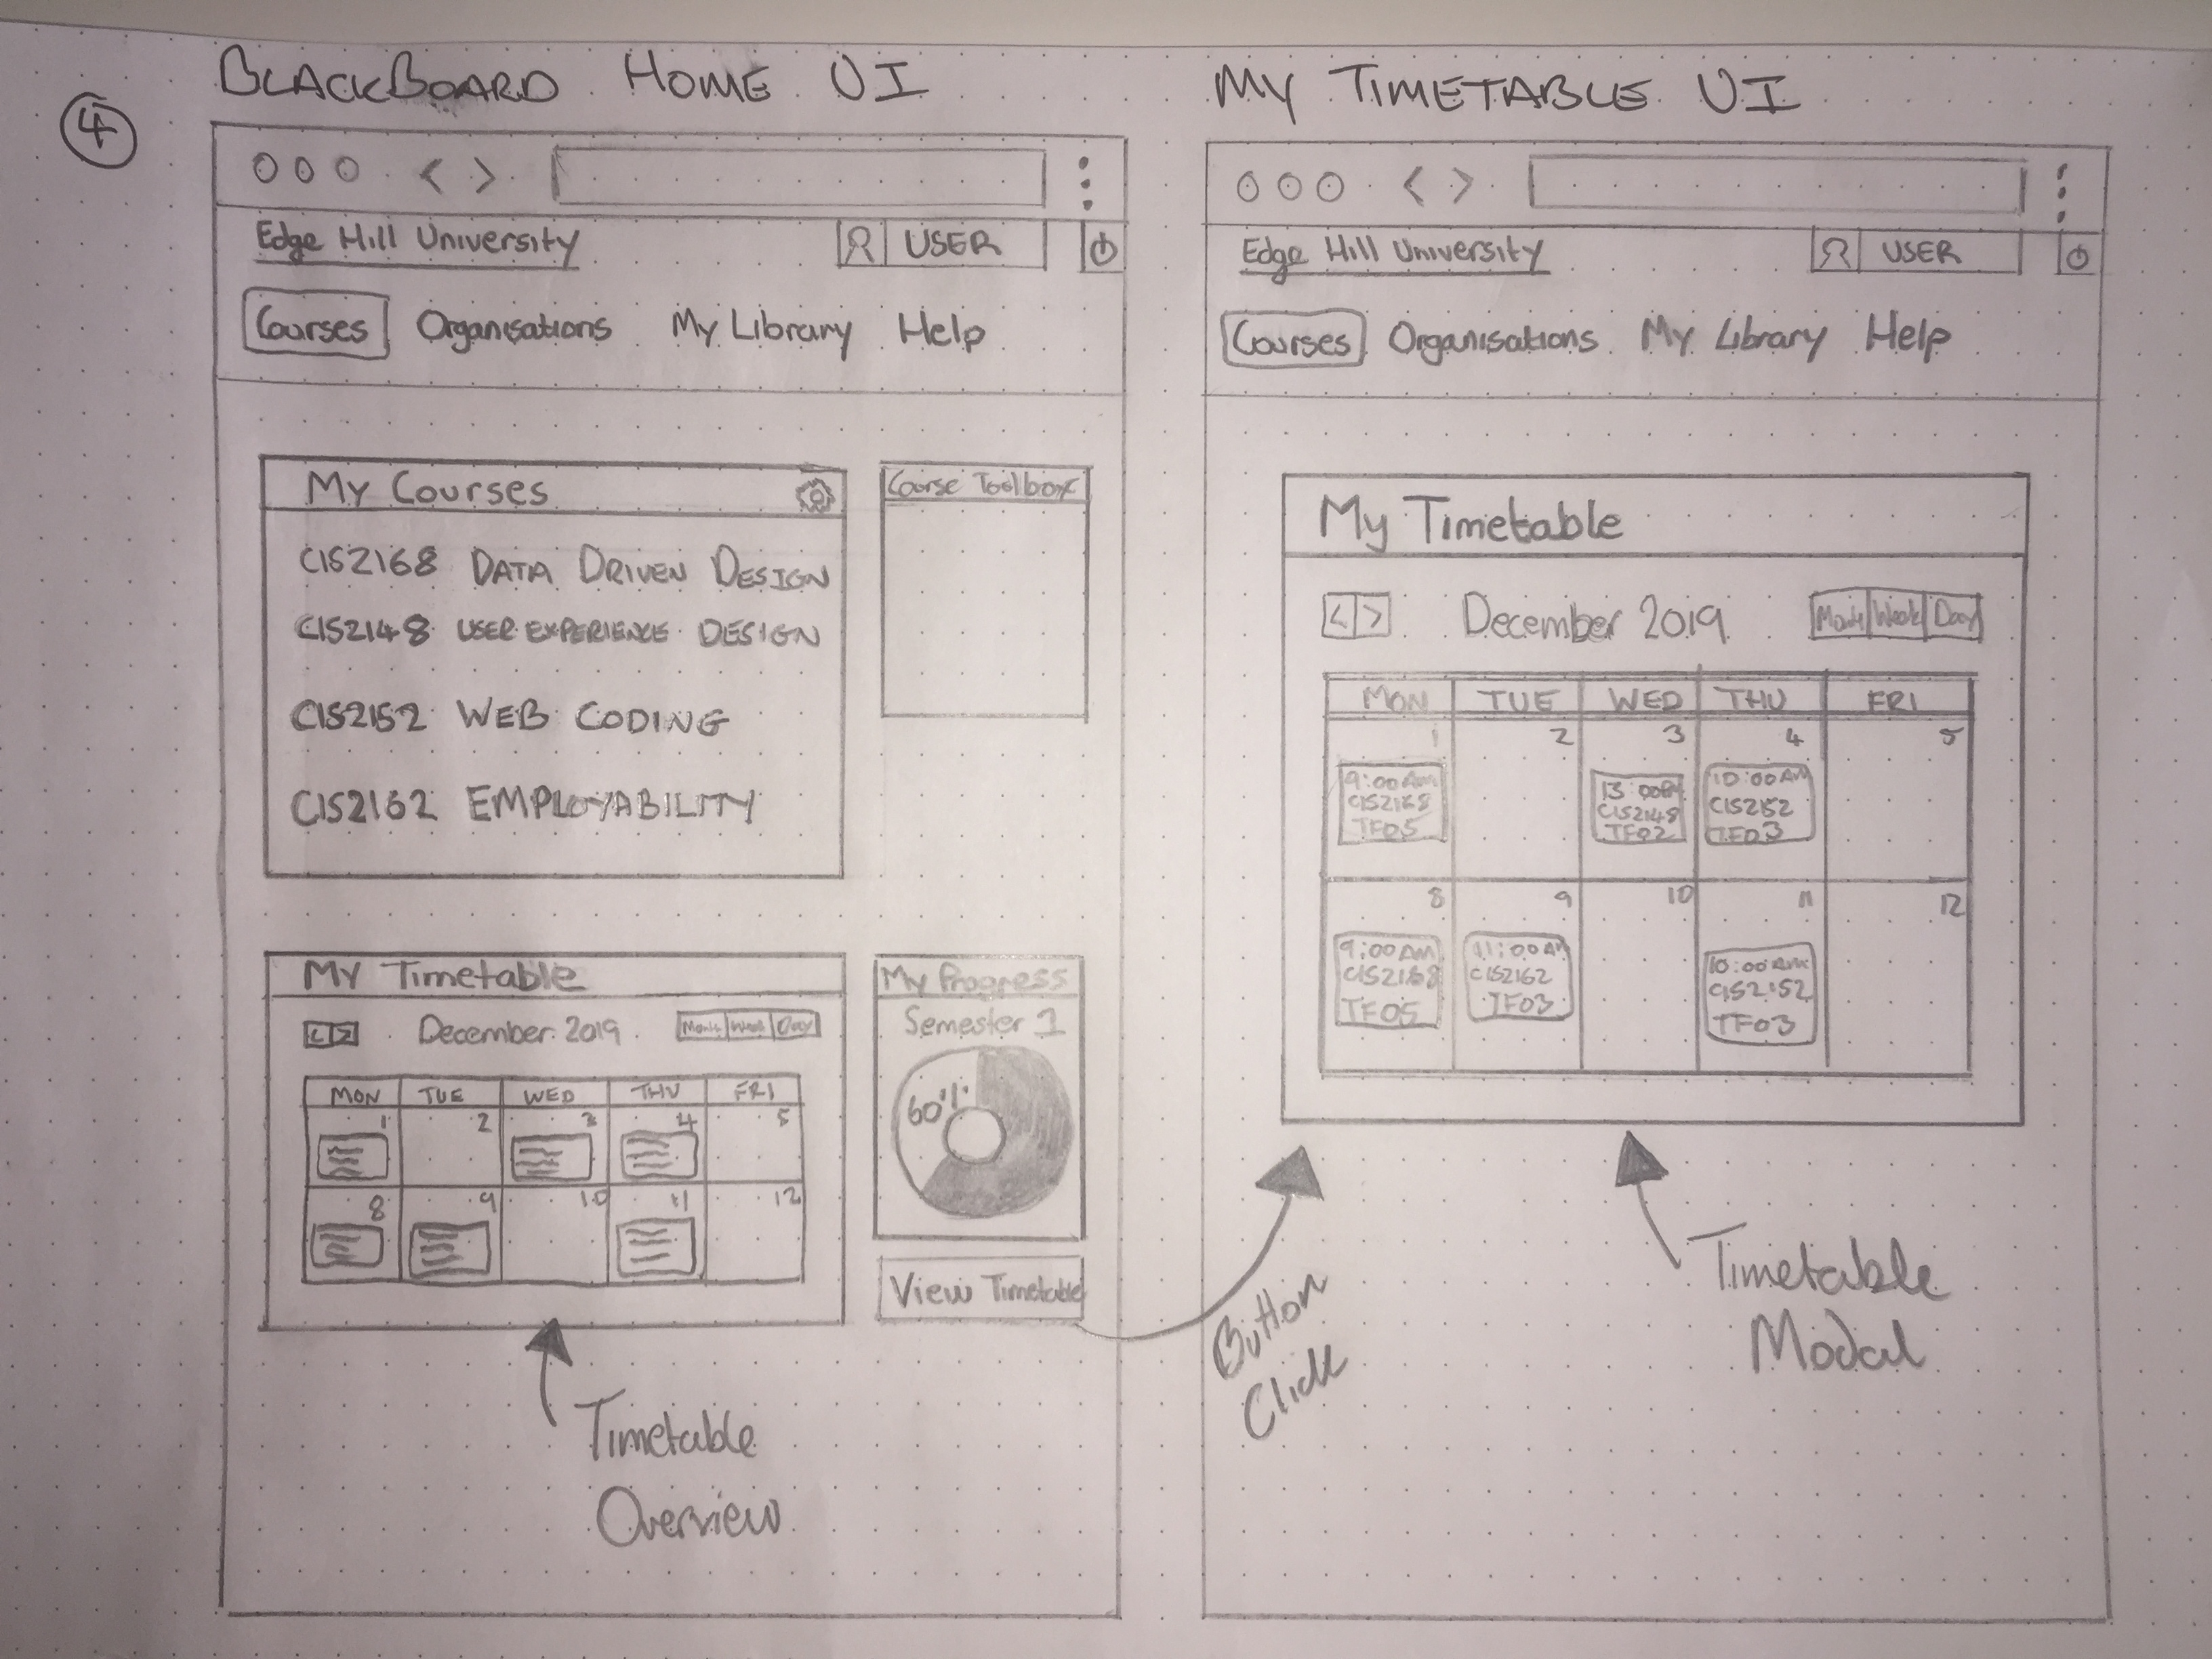 4
BLACKBOARD HOME UI
Edge Hill University
USER
Courses Organisations My Library Help
My Courses
CIS2168 DATA DRIVEN DESIGN
CIS2148 USER EXPERIENCE DESIGN
CIS2152 WEB CODING
CIS2162 EMPLOYABILITY
Course Toolbox
My Timetable
< > December 2019 Month Week Day
MON TUE WED THU FRI
1 2 3 4 5
8 9 10 11 12
My Progress
Semester 1
60%
View Timetable
Timetable
Overview
Button
Click
MY TIMETABLE UI
Edge Hill University
USER
Courses Organisations My Library Help
My Timetable
< > December 2019 Week Day
MON TUE WED THU FRI
1 2 3 4 5
9:00AM
CIS2168
TF05
13:00PM
CIS2148
TF02
10:00AM
CIS2152
TF03
8 9 10 11 12
9:00AM
CIS2168
TF05
11:00AM
CIS2162
TF03
10:00AM
CIS2152
TF03
Timetable
Modal